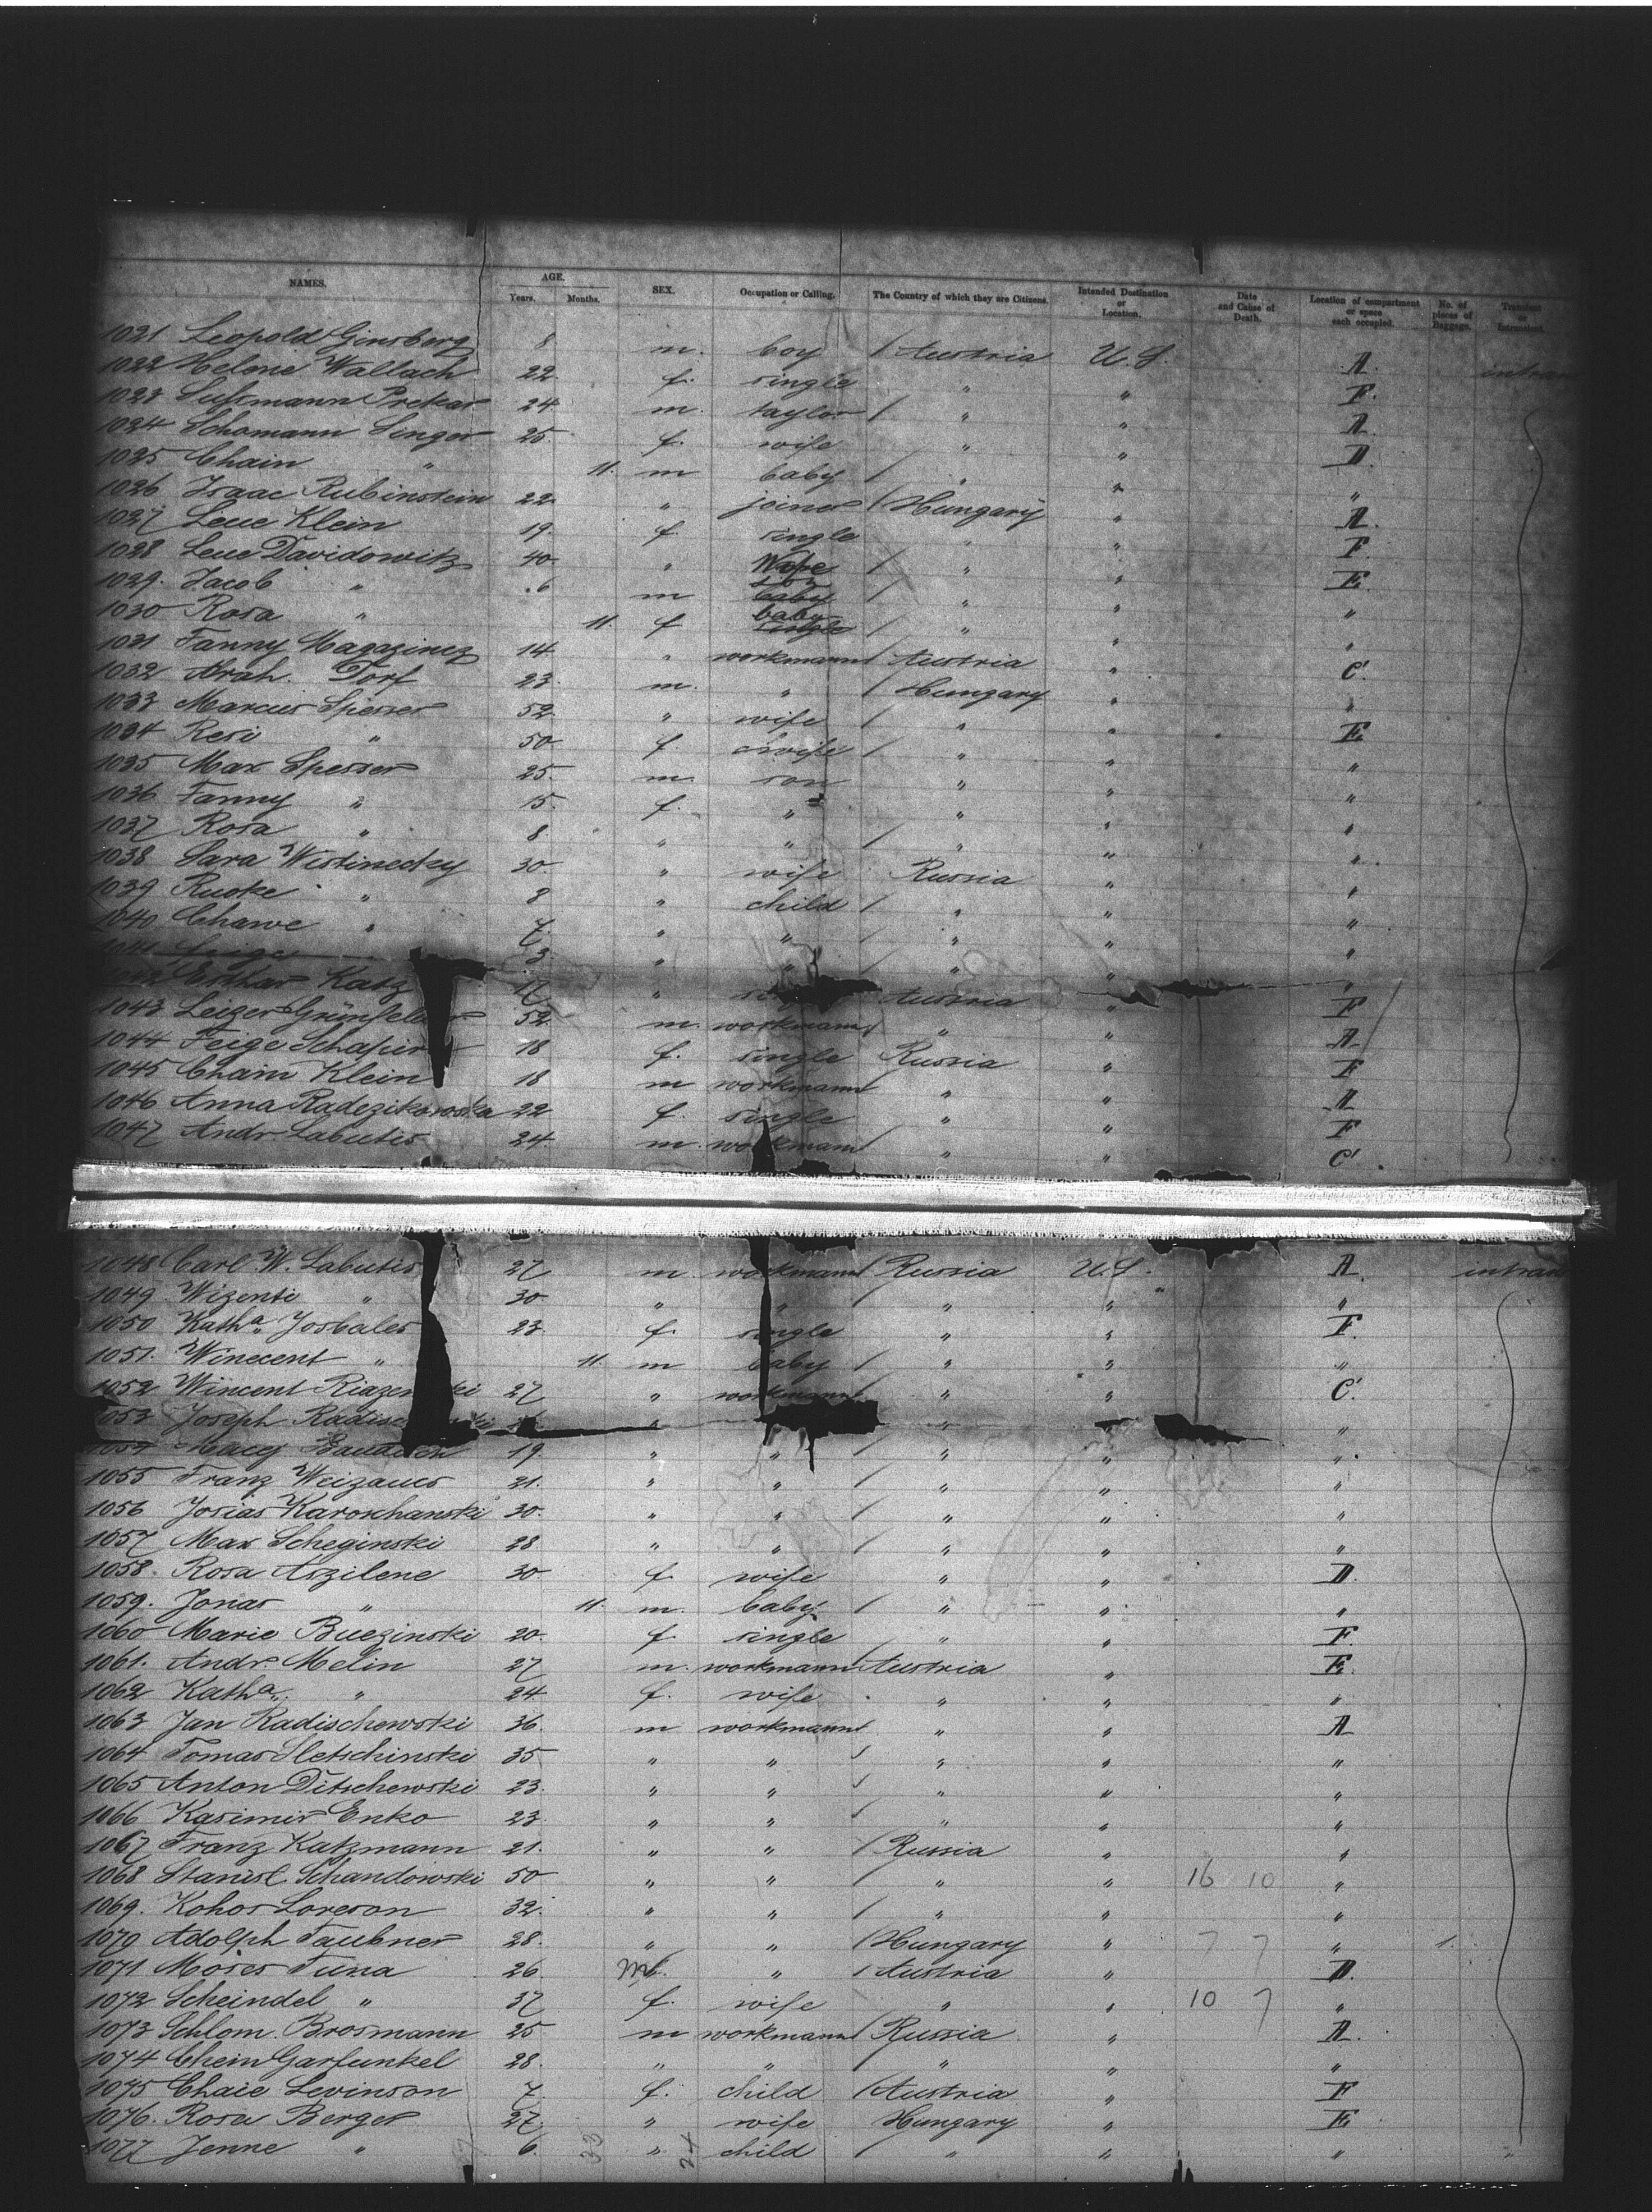 NAMES. AGE. Years. Months. SEX. Occupation or Calling. The Country of which they are Citizens. Intended Destination or Location. Date and Cause of Death. Location of compartment or space each occupied. No. of pieces of Baggage. Transient or
1021 Leopold Ginsberg 8 m. boy Austria U.S. A.
1022 Helene Wallach 22 f. single " " F.
1023 Sussmann Prekar 24 m. taylor " " A
1024 Schomann Singer 25. f. wife " " D.
1025 Chain " 11. m baby " " "
1026 Isaac Rubinstein 22 " joiner Hungary " A.
1027 Leue Klein 19. f. single " " F.
1028 Leue Davidowitz 40 " Wife " " E
1029. Jacob " 6 m baby " " "
1030 Rosa " 11. f baby single " " "
1031 Fanny 14. " workmann Austria " C'.
1032 Abrah. Dorf 23. m. " Hungary " "
1033 Marcus Spesser 52 " wife " " E
1034 Resi " 50 f wife " " "
1035 Max Spesser 25. m. son " " "
1036 Fanny " 15. f. " " " "
1037 Rosa " 8. " " " " "
1038 Sara Wistinecky 30. " wife Russia " "
1039 Ruske " 8 " child " " "
1040 Chawe " 7. " " " " "
1041 3 " " " " "
Esther Katz 17 " Austria " F
1043 Leizer 52 m. workmann " " A
1044 Feige 18 f. single Russia " F
1045 Chaim Klein 18 m workmann " " A
1046 Anna Radezikowska 22 f. single " " F
1047 Andr. Labutis 24. m. workmann " " C'
1048 Carl W. Labutis 27 m. workmann Russia U.S. A.
1049 Wizenti " 30 " " " " "
1050 Kath.a Josbales 23. f. single " " F.
1051. Winecent " 11. m baby " " "
1052 Wincent 27 " workmann " " C'.
1053 Joseph " " " "
1054 19. " " " " "
1055 Franz Weizaues 21. " " " " "
1056 Josias Karoschanski 30. " " " " "
1057 Max Scheginski 28 " " " " "
1058. Rosa Aszilene 30 f. wife " " D.
1059. Jonas " 11. m. baby " " "
1060 Marie Buczinski 20. f. single " " F.
1061. Andr. Melin 27 m. workmann Austria " E.
1062 Kath.a " 24. f. wife " " "
1063 Jan Radischewski 36. m workmann " " A
1064 Tomas Sletschinski 35 " " " " "
1065 Anton Ditschewski 23. " " " " "
1066 Kasimir Enko 23. " " " " "
1067 Franz Katzmann 21. " " Russia " "
1068 Stanisl. Schandowski 50 " " " " 16 10 "
1069. Kohos Loreson 32. " " " " "
1070 Adolph Taubner 28. " " Hungary " 7 7 " 1.
1071 Moses Tuna 26. " Austria " D.
1072 Scheindel " 37 f. wife " " 10 7 "
1073 Schlom. Brosmann 25 m workmann Russia " A.
1074 Chein Garfunkel 28. " " " " "
1075 Chaie Levinson 7. f. child Austria " F
1076. Rosa Berger 27. " wife Hungary " E.
1077 Jenne " 6. 33 " 24 child " " "